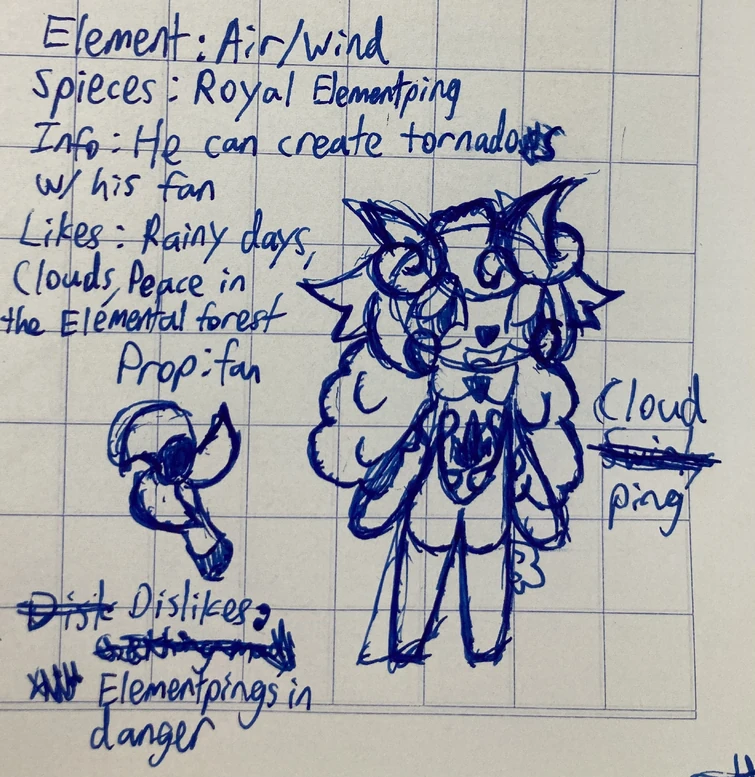 Element: Air/wind
Spieces: Royal Elementping
Info: He can create tornados
w/ his fan
Likes: Rainy days,
Clouds, Peace in
the Elemental forest
Prop: fan
Cloud
ping
Disk Dislikes:
Elementpings in
danger